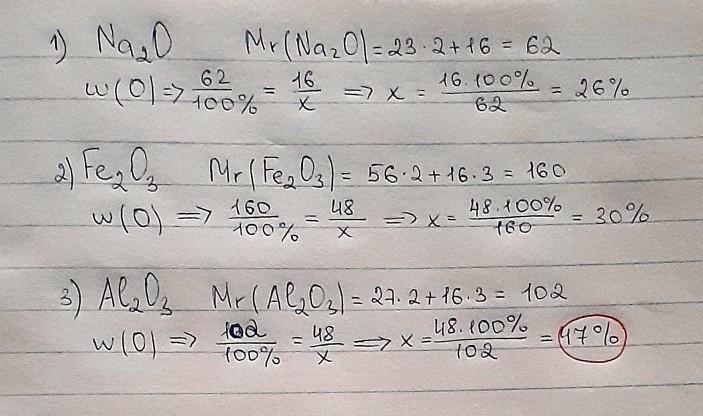 1) Na₂O Mr(Na₂O) = 23·2+16 = 62
w(O) => 62/100% = 16/x => x = 16·100%/62 = 26%
2) Fe₂O₃ Mr(Fe₂O₃) = 56·2+16·3 = 160
w(O) => 160/100% = 48/x => x = 48·100%/160 = 30%
3) Al₂O₃ Mr(Al₂O₃) = 27·2+16·3 = 102
w(O) => 102/100% = 48/x => x = 48·100%/102 = 47%